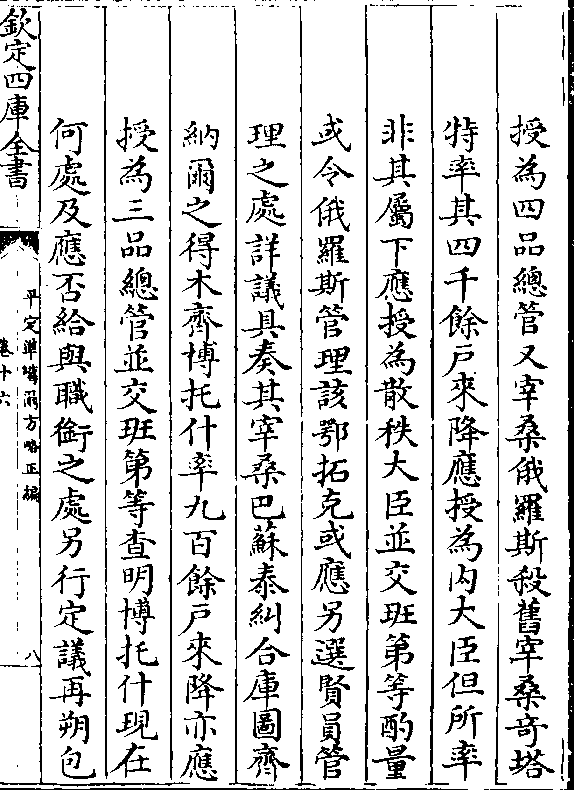 授為四品總管又宰桑俄羅斯殺舊宰桑奇塔
特率其四千餘戶來降應授為內大臣但所率
非其屬下應授為散秩大臣並交班第等酌量
或令俄羅斯管理該鄂拓克或應另選賢員管
理之處詳議具奏其宰桑巴蘇泰糾合庫圖齊
納爾之得木齊博托什率九百餘戶來降亦應
授為三品總管並交班第等查明博托什現在
何處及應否給與職銜之處另行定議再朔包
欽定四庫全書
平定準噶爾方略正編
卷十六
八